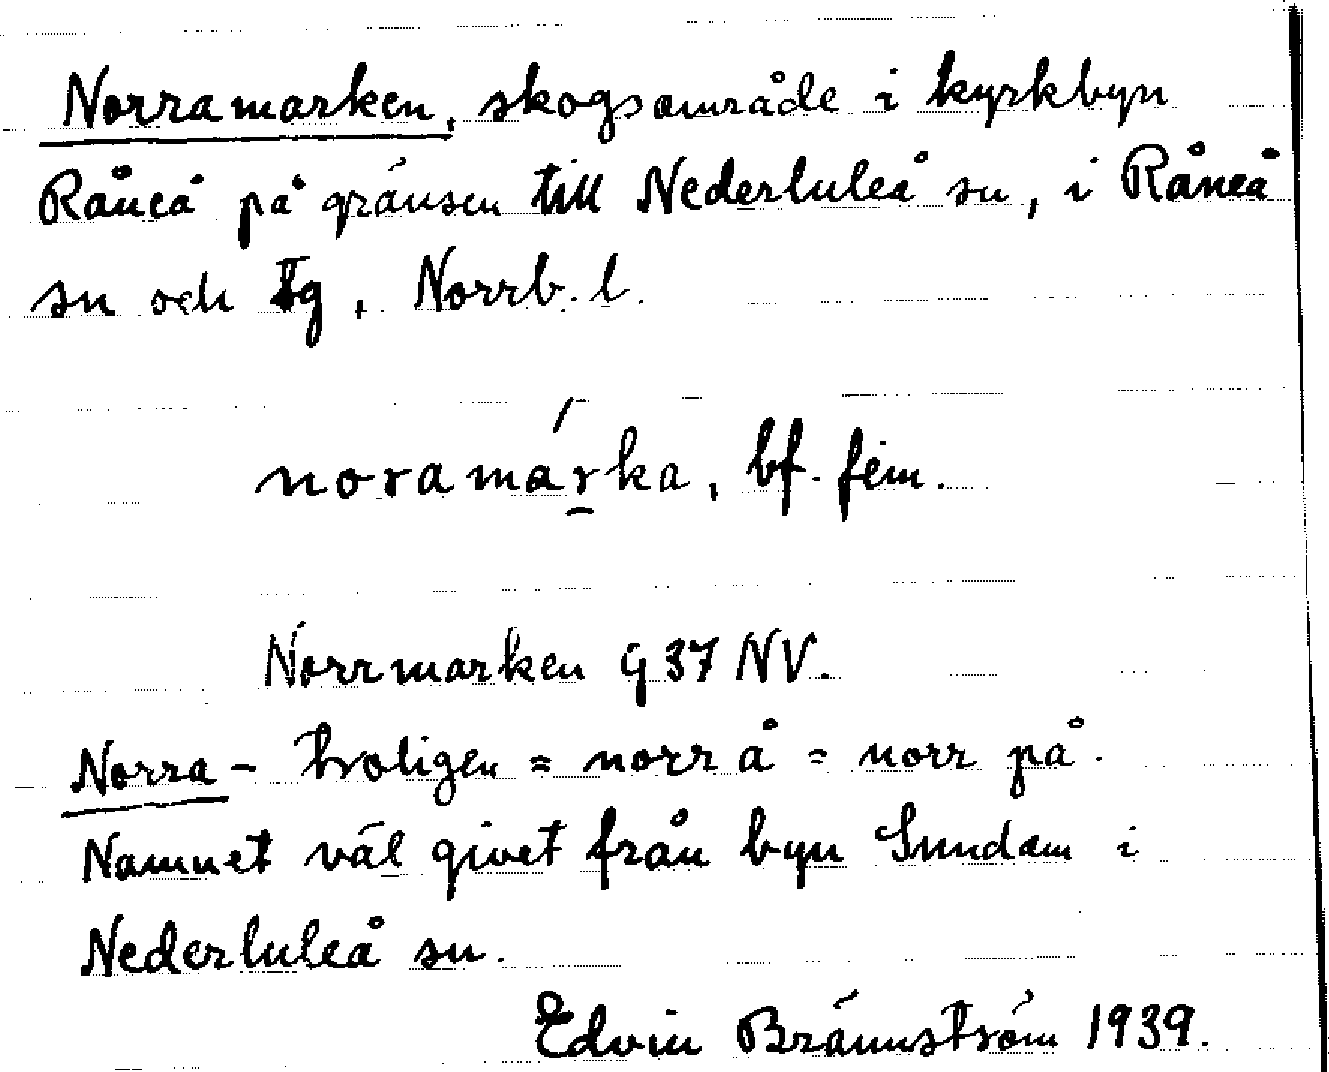 Norramarken, skogsområde i kyrkbyn
Råneå på gränsen till Nederluleå sn, i Råneå
sn och tg, Norrb. l.
noramárka, bf. fem.
Norrmarken G 37 NV.
Norra - troligen = norr å = norr på.
Namnet väl givet från byn Sundom i
Nederluleå sn.
Edvin Brännström 1939.